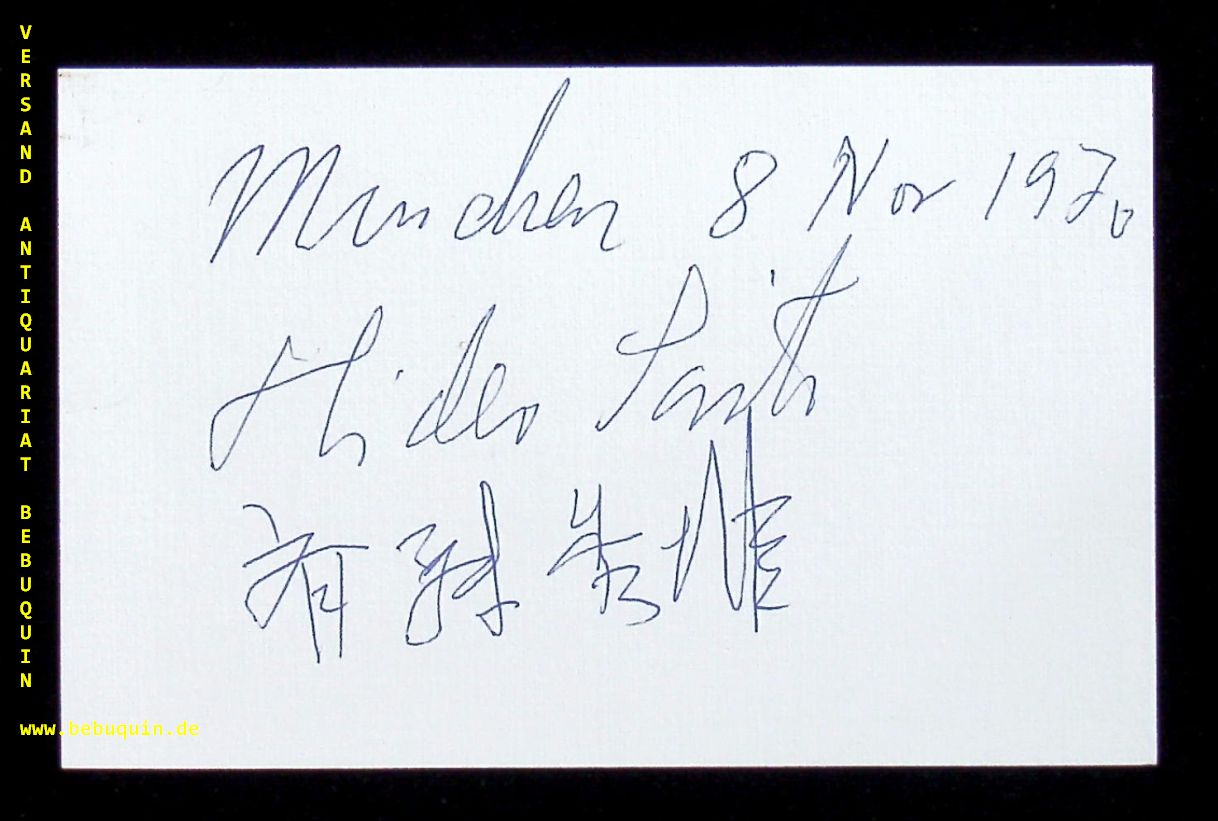 VERSAND ANTIQUARIAT BEBUQUIN
www.bebuquin.de
München 8 Nov 1970
Hideo Saito
斎藤秀雄